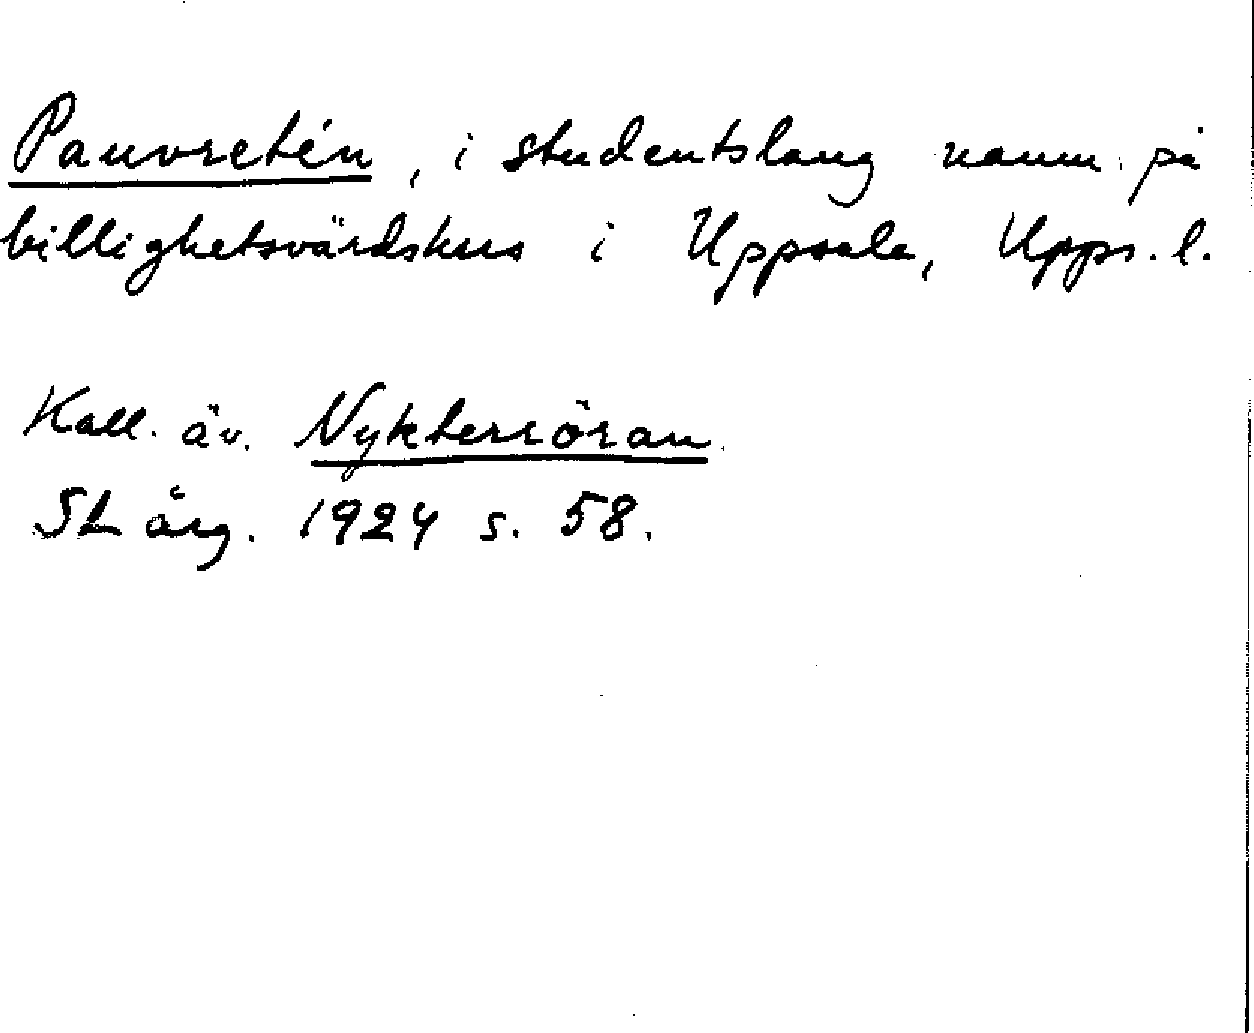 Pauvretén, i studentslang namn på
billighetsvärdshus i Uppsala, Upps. l.
Kall. äv. Nykterröran.
St årg. 1924 s. 58.